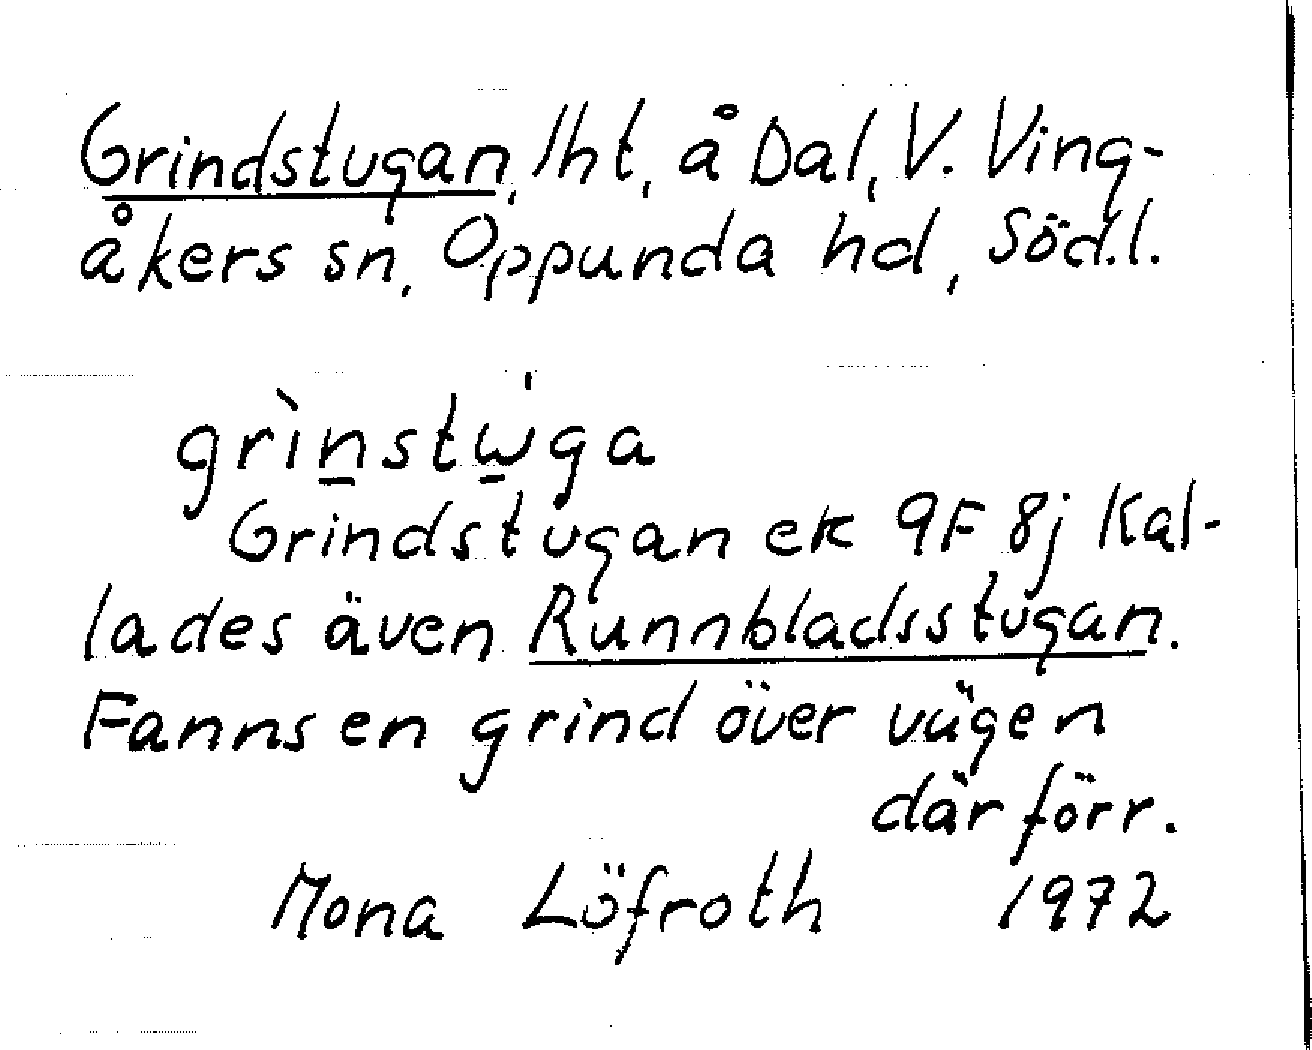 Grindstugan, lht, å Dal, V. Ving-
åkers sn, Oppunda hd, Södl.
grìn̲stώ̲ga
Grindstugan ek 9F 8j Kal-
lades även Runnbladsstugan.
Fanns en grind över vägen
där förr.
Mona Löfroth 1972